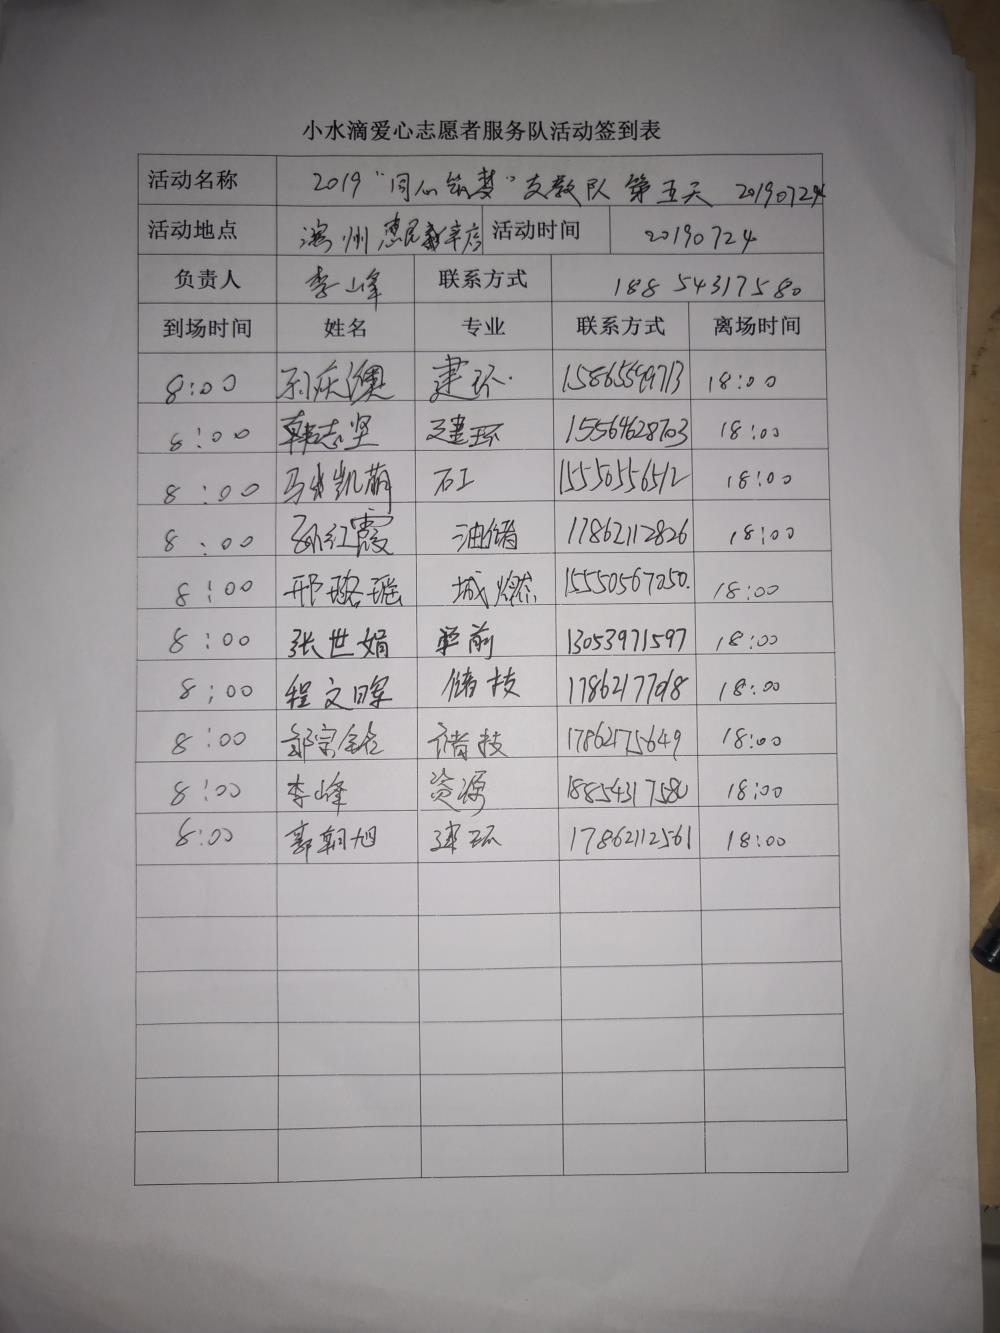 小水滴爱心志愿者服务队活动签到表
活动名称 2019“同心筑梦”支教队 第五天 20190724
活动地点 滨州惠民 活动时间 20190724
负责人 李峰 联系方式 18854317580
到场时间 姓名 专业 联系方式 离场时间
8:00 庆澳 建环 15865589713 18:00
8:00 韩志坚 建环 15564628703 18:00
8:00 马凯萌 石工 15550556512 18:00
8:00 孙红霞 油储 17862112826 18:00
8:00 邢璐瑶 城燃 15550567250. 18:00
8:00 张世娟 学前 13053971597 18:00
8:00 程文晖 储技 18:00
8:00 邹宗铭 储技 17862175649 18:00
8:00 李峰 资源 18854317580 18:00
8:00 郭朝旭 建环 17862112561 18:00